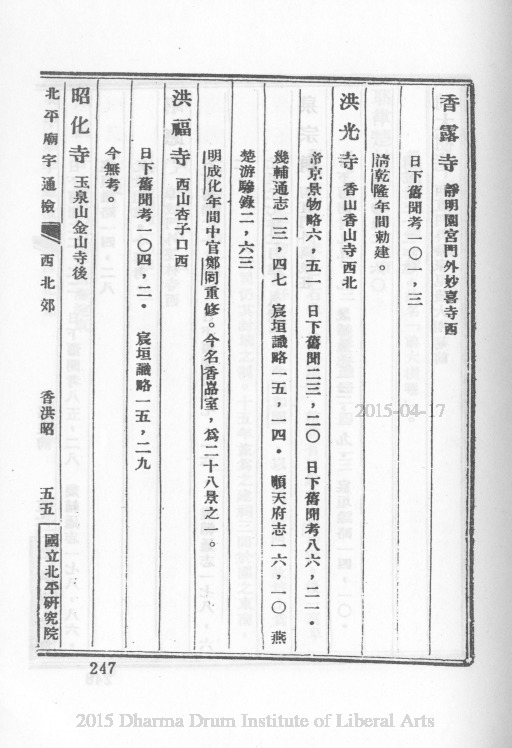 香露寺 靜明園宮門外妙喜寺西
日下舊聞考一〇一，三
清乾隆年間勅建。
洪光寺 香山香山寺西北
帝京景物略六，五一 日下舊聞二三，二〇 日下舊聞考八六，二一・
畿輔通志一三，四七 宸垣識略一五，一四・ 順天府志一六，一〇 燕
楚游驂錄二，六三
明成化年間中官鄭同重修。今名香嵓室，爲二十八景之一。
洪福寺 西山杏子口西
日下舊聞考一〇四，二・ 宸垣識略一五，二九
今無考。
昭化寺 玉泉山金山寺後
北平廟宇通檢 西北郊 香洪昭 五五 國立北平研究院
247
2015-04-17
2015 Dharma Drum Institute of Liberal Arts